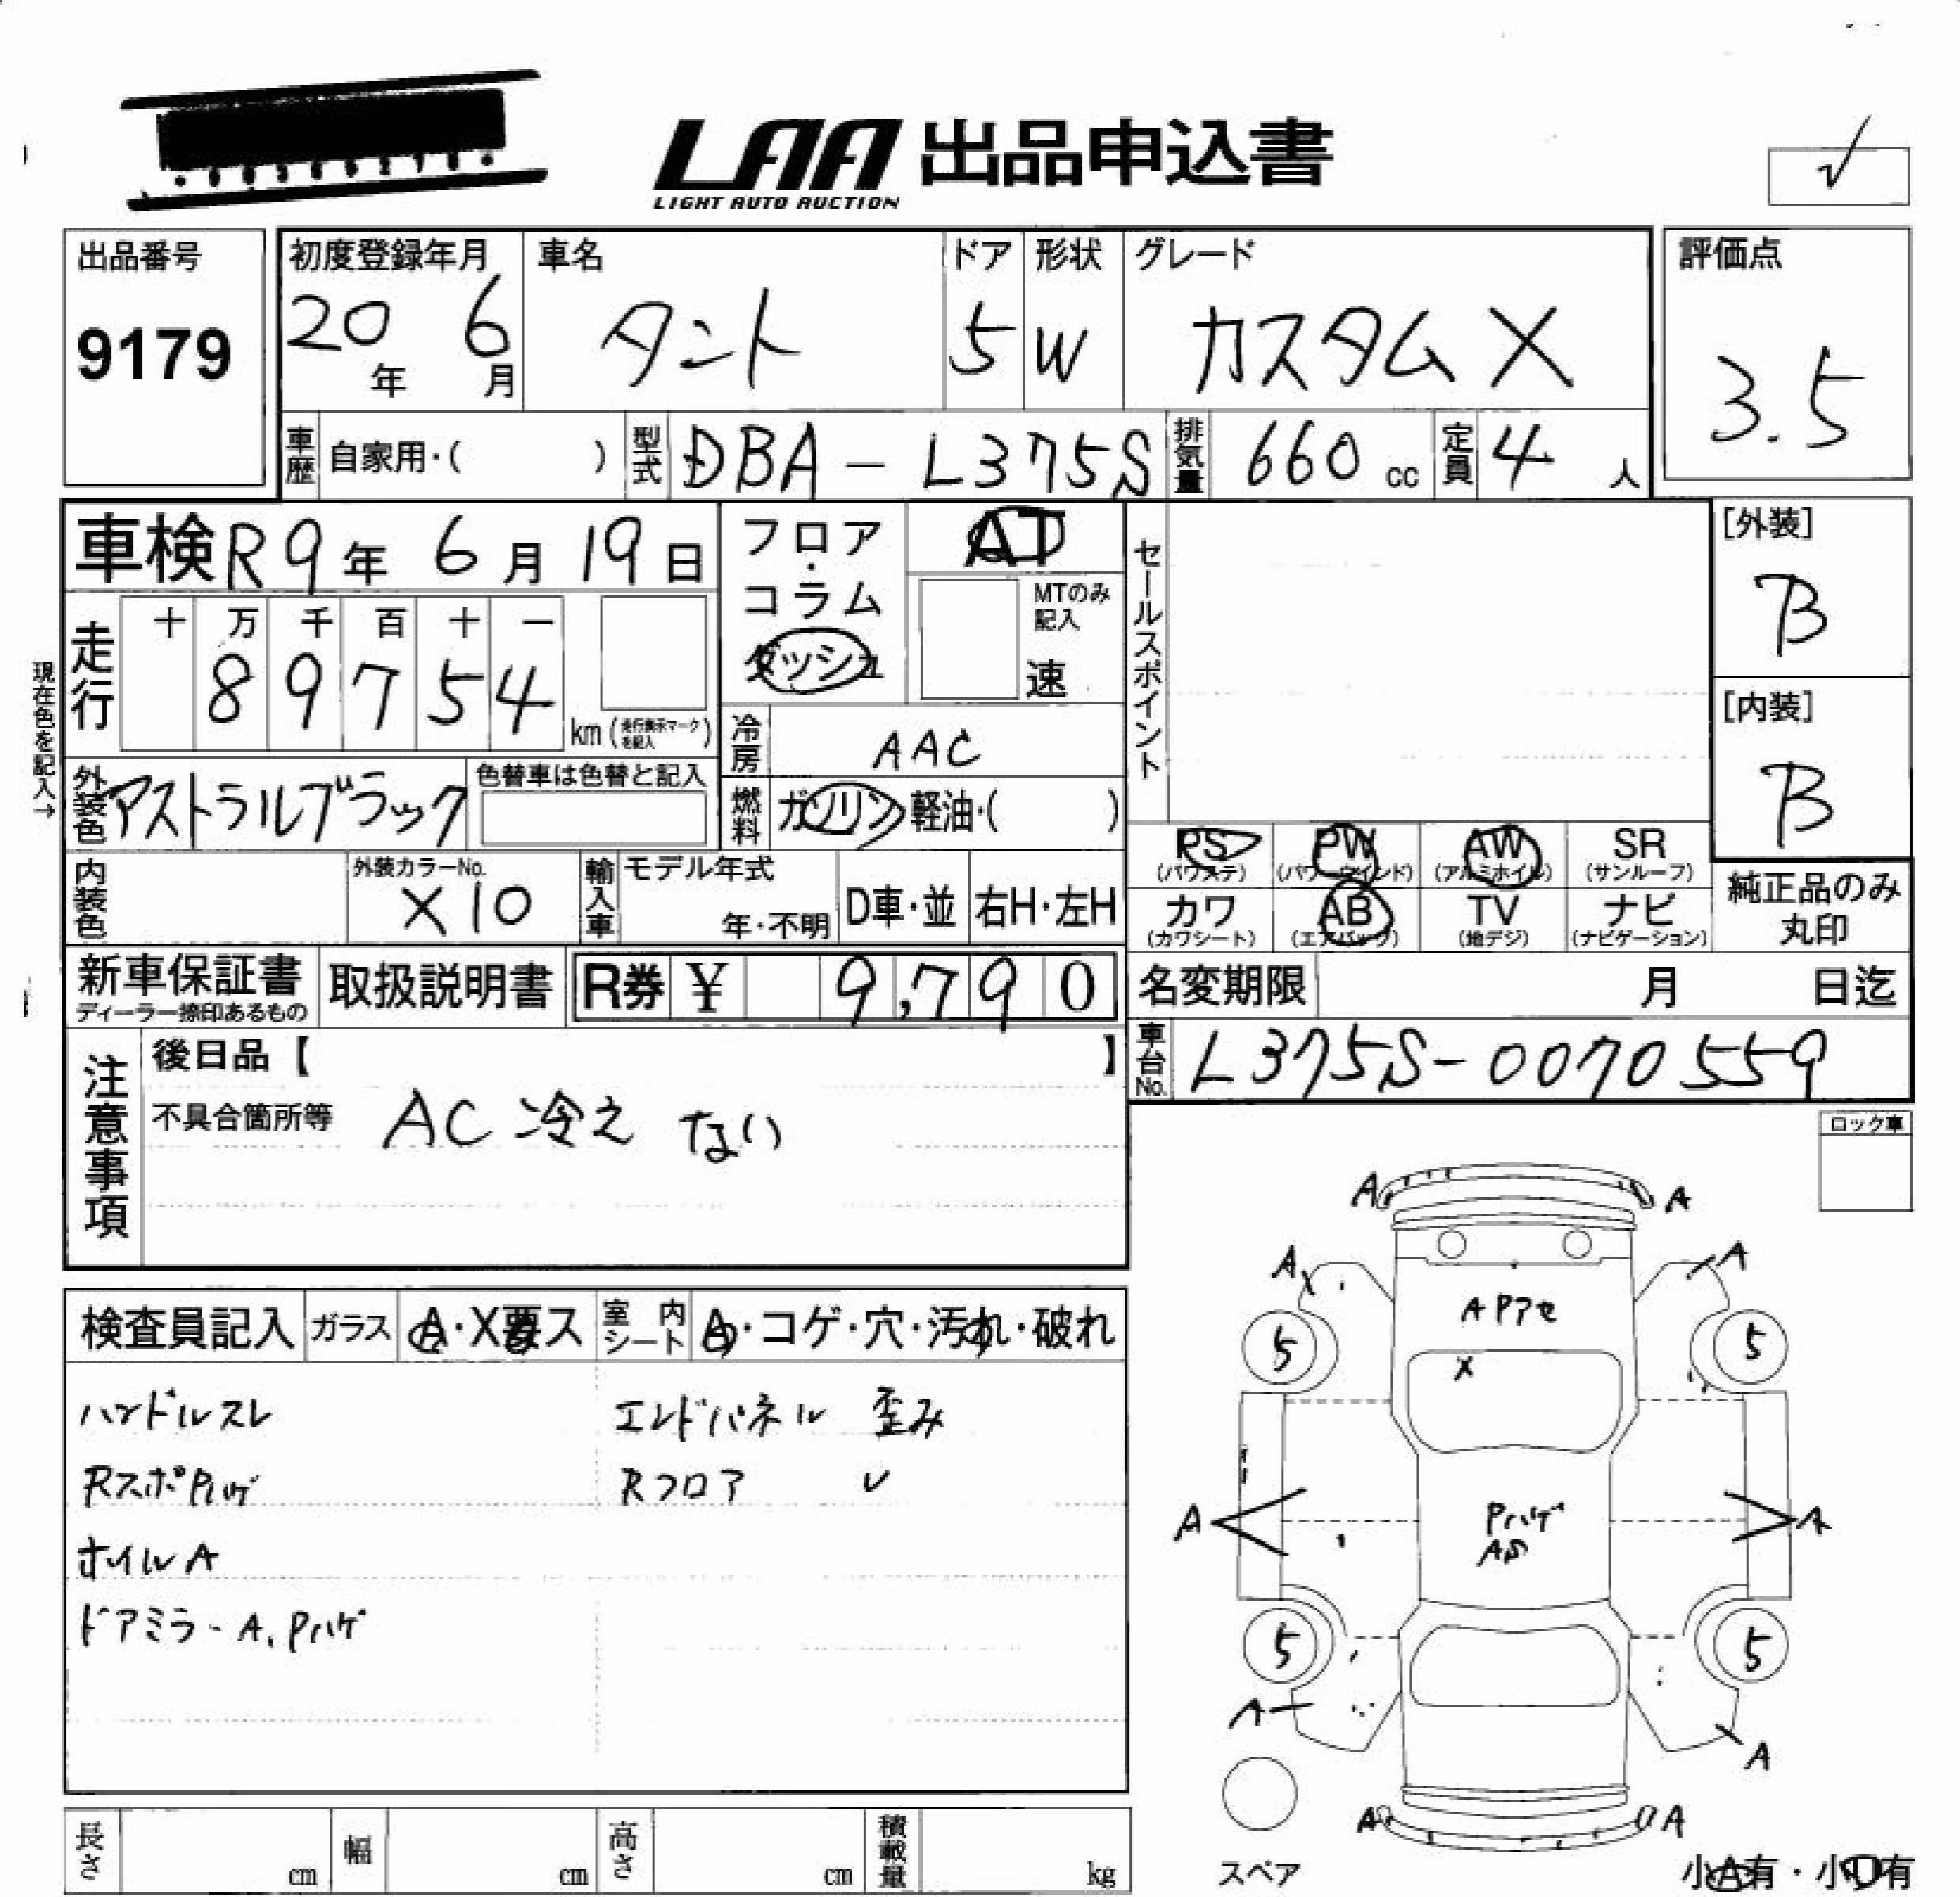 LAA 出品申込書
LIGHT AUTO AUCTION
出品番号
9179
初度登録年月
20年 6月
車名
タント
ドア
5
形状
W
グレード
カスタムX
評価点
3.5
車歴 自家用・( )
型式 DBA-L375S
排気量 660 cc
定員 4 人
車検 R9年 6月 19日
フロア・コラム
ダッシュ
AT
MTのみ記入
速
セールスポイント
[外装]
B
[内装]
B
現在色を記入→
走行
十 万 千 百 十 一
8 9 7 5 4
km (走行表示マークを記入)
冷房 AAC
外装色 アストラルブラック
色替車は色替と記入
燃料 ガソリン 軽油・( )
内装色
外装カラーNo.
X10
輸入車
モデル年式
年・不明
D車・並
右H・左H
PS (パワステ)
PW (パワーウインド)
AW (アルミホイル)
SR (サンルーフ)
カワ (カワシート)
AB (エアバッグ)
TV (地デジ)
ナビ (ナビゲーション)
純正品のみ丸印
新車保証書
ディーラー捺印あるもの
取扱説明書
R券 ¥ 9,790
名変期限 月 日迄
車台No. L375S-0070559
注意事項
後日品【 】
不具合箇所等 AC 冷え ない
ロック車
検査員記入 ガラス A・X要ス 室内シート A・コゲ・穴・汚れ・破れ
ハンドルスレ
Rスポ Pハゲ
ホイルA
ドアミラーA. Pハゲ
エンドパネル 歪み
Rフロア 〃
A A
A A
A Pアセ
5 5
X
A A
Pハゲ
5 5
A A
A A
スペア
小A有・小U有
長さ cm
幅 cm
高さ cm
積載量 kg